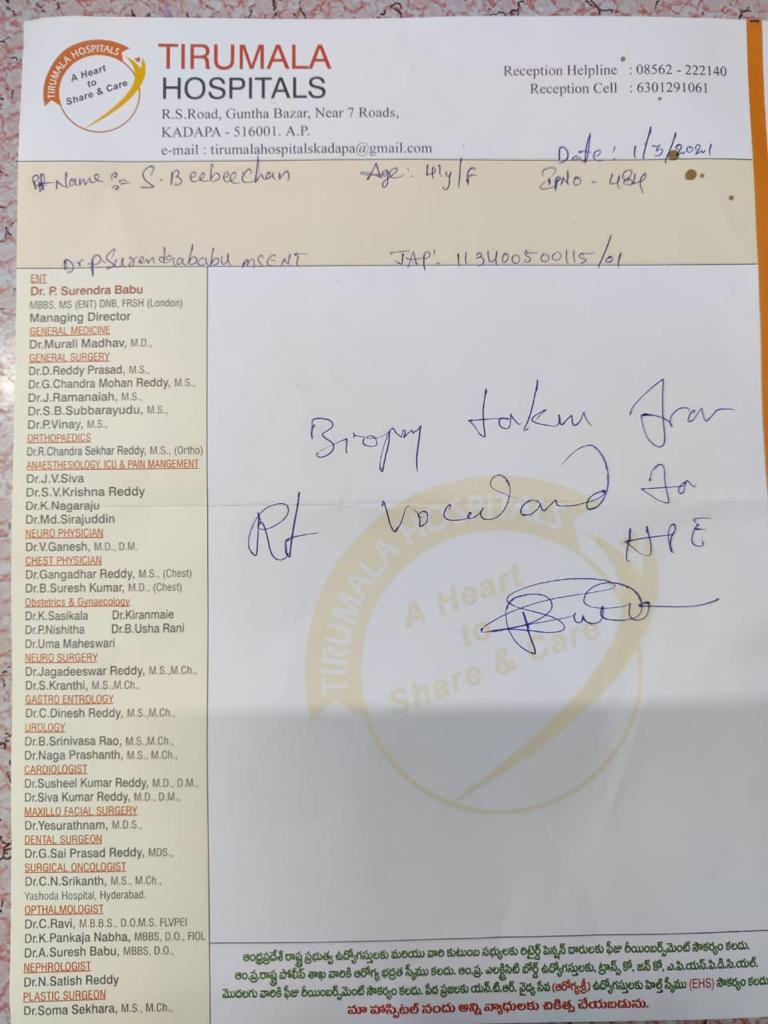 TIRUMALA HOSPITALS
A Heart
to
Share & Care
TIRUMALA
HOSPITALS
R.S.Road, Guntha Bazar, Near 7 Roads,
KADAPA - 516001. A.P.
e-mail : tirumalahospitalskadapa@gmail.com
Reception Helpline : 08562 - 222140
Reception Cell : 6301291061
Date : 1/3/2021
Pt Name := S. Beebeechan Age: 41y/F IPNO - 484
Dr P. Surendrababu MS ENT JAP: 113400500115/01
ENT
Dr. P. Surendra Babu
MBBS, MS (ENT) DNB, FRSH (London)
Managing Director
GENERAL MEDICINE
Dr.Murali Madhav, M.D.,
GENERAL SURGERY
Dr.D.Reddy Prasad, M.S.,
Dr.G.Chandra Mohan Reddy, M.S.,
Dr.J.Ramanaiah, M.S.,
Dr.S.B.Subbarayudu, M.S.,
Dr.P.Vinay, M.S.,
ORTHOPAEDICS
Dr.R.Chandra Sekhar Reddy, M.S., (Ortho)
ANAESTHESIOLOGY, ICU & PAIN MANGEMENT
Dr.J.V.Siva
Dr.S.V.Krishna Reddy
Dr.K.Nagaraju
Dr.Md.Sirajuddin
NEURO PHYSICIAN
Dr.V.Ganesh, M.D., D.M.
CHEST PHYSICIAN
Dr.Gangadhar Reddy, M.S., (Chest)
Dr.B.Suresh Kumar, M.D., (Chest)
Obstetrics & Gynaecology
Dr.K.Sasikala Dr.Kiranmaie
Dr.P.Nishitha Dr.B.Usha Rani
Dr.Uma Maheswari
NEURO SURGERY
Dr.Jagadeeswar Reddy, M.S.,M.Ch.,
Dr.S.Kranthi, M.S.,M.Ch.,
GASTRO ENTROLOGY
Dr.C.Dinesh Reddy, M.S.,M.Ch.,
UROLOGY
Dr.B.Srinivasa Rao, M.S.,M.Ch.,
Dr.Naga Prashanth, M.S., M.Ch.,
CARDIOLOGIST
Dr.Susheel Kumar Reddy, M.D., D.M.,
Dr.Siva Kumar Reddy, M.D., D.M.,
MAXILLO FACIAL SURGERY
Dr.Yesurathnam, M.D.S.,
DENTAL SURGEON
Dr.G.Sai Prasad Reddy, MDS.,
SURGICAL ONCOLOGIST
Dr.C.N.Srikanth, M.S., M.Ch.,
Yashoda Hospital, Hyderabad.
OPTHALMOLOGIST
Dr.C.Ravi, M.B.B.S., D.O.M.S. FLVPEI
Dr.K.Pankaja Nabha, MBBS, D.O., FIOL
Dr.A.Suresh Babu, MBBS, D.O.,
NEPHROLOGIST
Dr.N.Satish Reddy
PLASTIC SURGEON
Dr.Soma Sekhara, M.S., M.Ch.,
Biopsy taken from
Rt vocal cord for
HPE
TIRUMALA HOSPITALS
A Heart
to
Share & Care
ఆంధ్రప్రదేశ్ రాష్ట్ర ప్రభుత్వ ఉద్యోగస్తులకు మరియు వారి కుటుంబ సభ్యులకు రిటైర్డ్ పెన్షన్ దారులకు ఫీజు రీయింబర్స్‌మెంట్ సౌకర్యం కలదు.
ఆం.ప్ర.రాష్ట్ర పోలీస్ శాఖ వారికి ఆరోగ్య భద్రత స్కీము కలదు. ఆం.ప్ర. ఎలక్ట్రిసిటి బోర్డ్ ఉద్యోగస్తులకు, ట్రాన్స్ కో, జన్ కో, ఎ.పి.యస్.పి.డి.సి.యల్.
మొదలగు వారికి ఫీజు రీయింబర్స్‌మెంట్ సౌకర్యం కలదు. పేద ప్రజలకు యన్.టి.ఆర్. వైద్య సేవ (ఆరోగ్యశ్రీ) ఉద్యోగస్తులకు హెల్త్ స్కీము (EHS) సౌకర్యం కలదు
మా హాస్పిటల్ నందు అన్ని వ్యాధులకు చికిత్స చేయబడును.